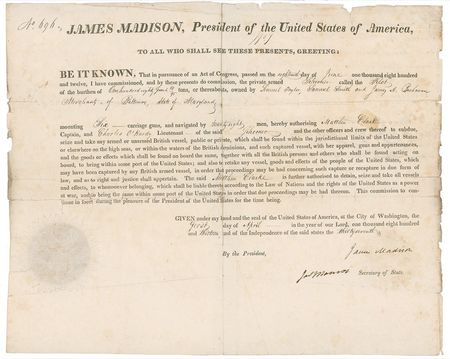 No. 696.
JAMES MADISON, President of the United States of America,
TO ALL WHO SHALL SEE THESE PRESENTS, GREETING:
BE IT KNOWN, That in pursuance of an Act of Congress, passed on the day of June one thousand eight hundred
and twelve, I have commissioned, and by these presents do commission, the private armed Schooner called the of
the burthen of tons, or thereabouts, owned by Samuel Smith and
Merchants of Baltimore, State of Maryland
mounting Six carriage guns, and navigated by men, hereby authorising
Captain, and Charles Lieutenant of the said and the other officers and crew thereof to subdue,
seize and take any armed or unarmed British vessel, public or private, which shall be found within the jurisdictional limits of the United States
or elsewhere on the high seas, or within the waters of the British dominions, and such captured vessel, with her apparel, guns and appurtenances,
and the goods or effects which shall be found on board the same, together with all the British persons and others who shall be found acting
on board, to bring within some port of the United States; and also to retake any vessel, goods and effects of the people of the United States, which
may have been captured by any British armed vessel, in order that proceedings may be had concerning such capture or recapture in due form of
law, and as to right and justice shall appertain. The said Clarke is further authorised to detain, seize and take all vessels
and effects, to whomsoever belonging, which shall be liable thereto according to the Law of Nations and the rights of the United States as a power
at war, and to bring the same within some port of the United States in order that due proceedings may be had thereon. This commission to con-
tinue in force during the pleasure of the President of the United States for the time being.
GIVEN under my hand and the seal of the United States of America, at the City of Washington, the
first day of April in the year of our Lord, one thousand eight hundred
and and of the Independence of the said states the
By the President, James Madison
Jas Monroe Secretary of State.